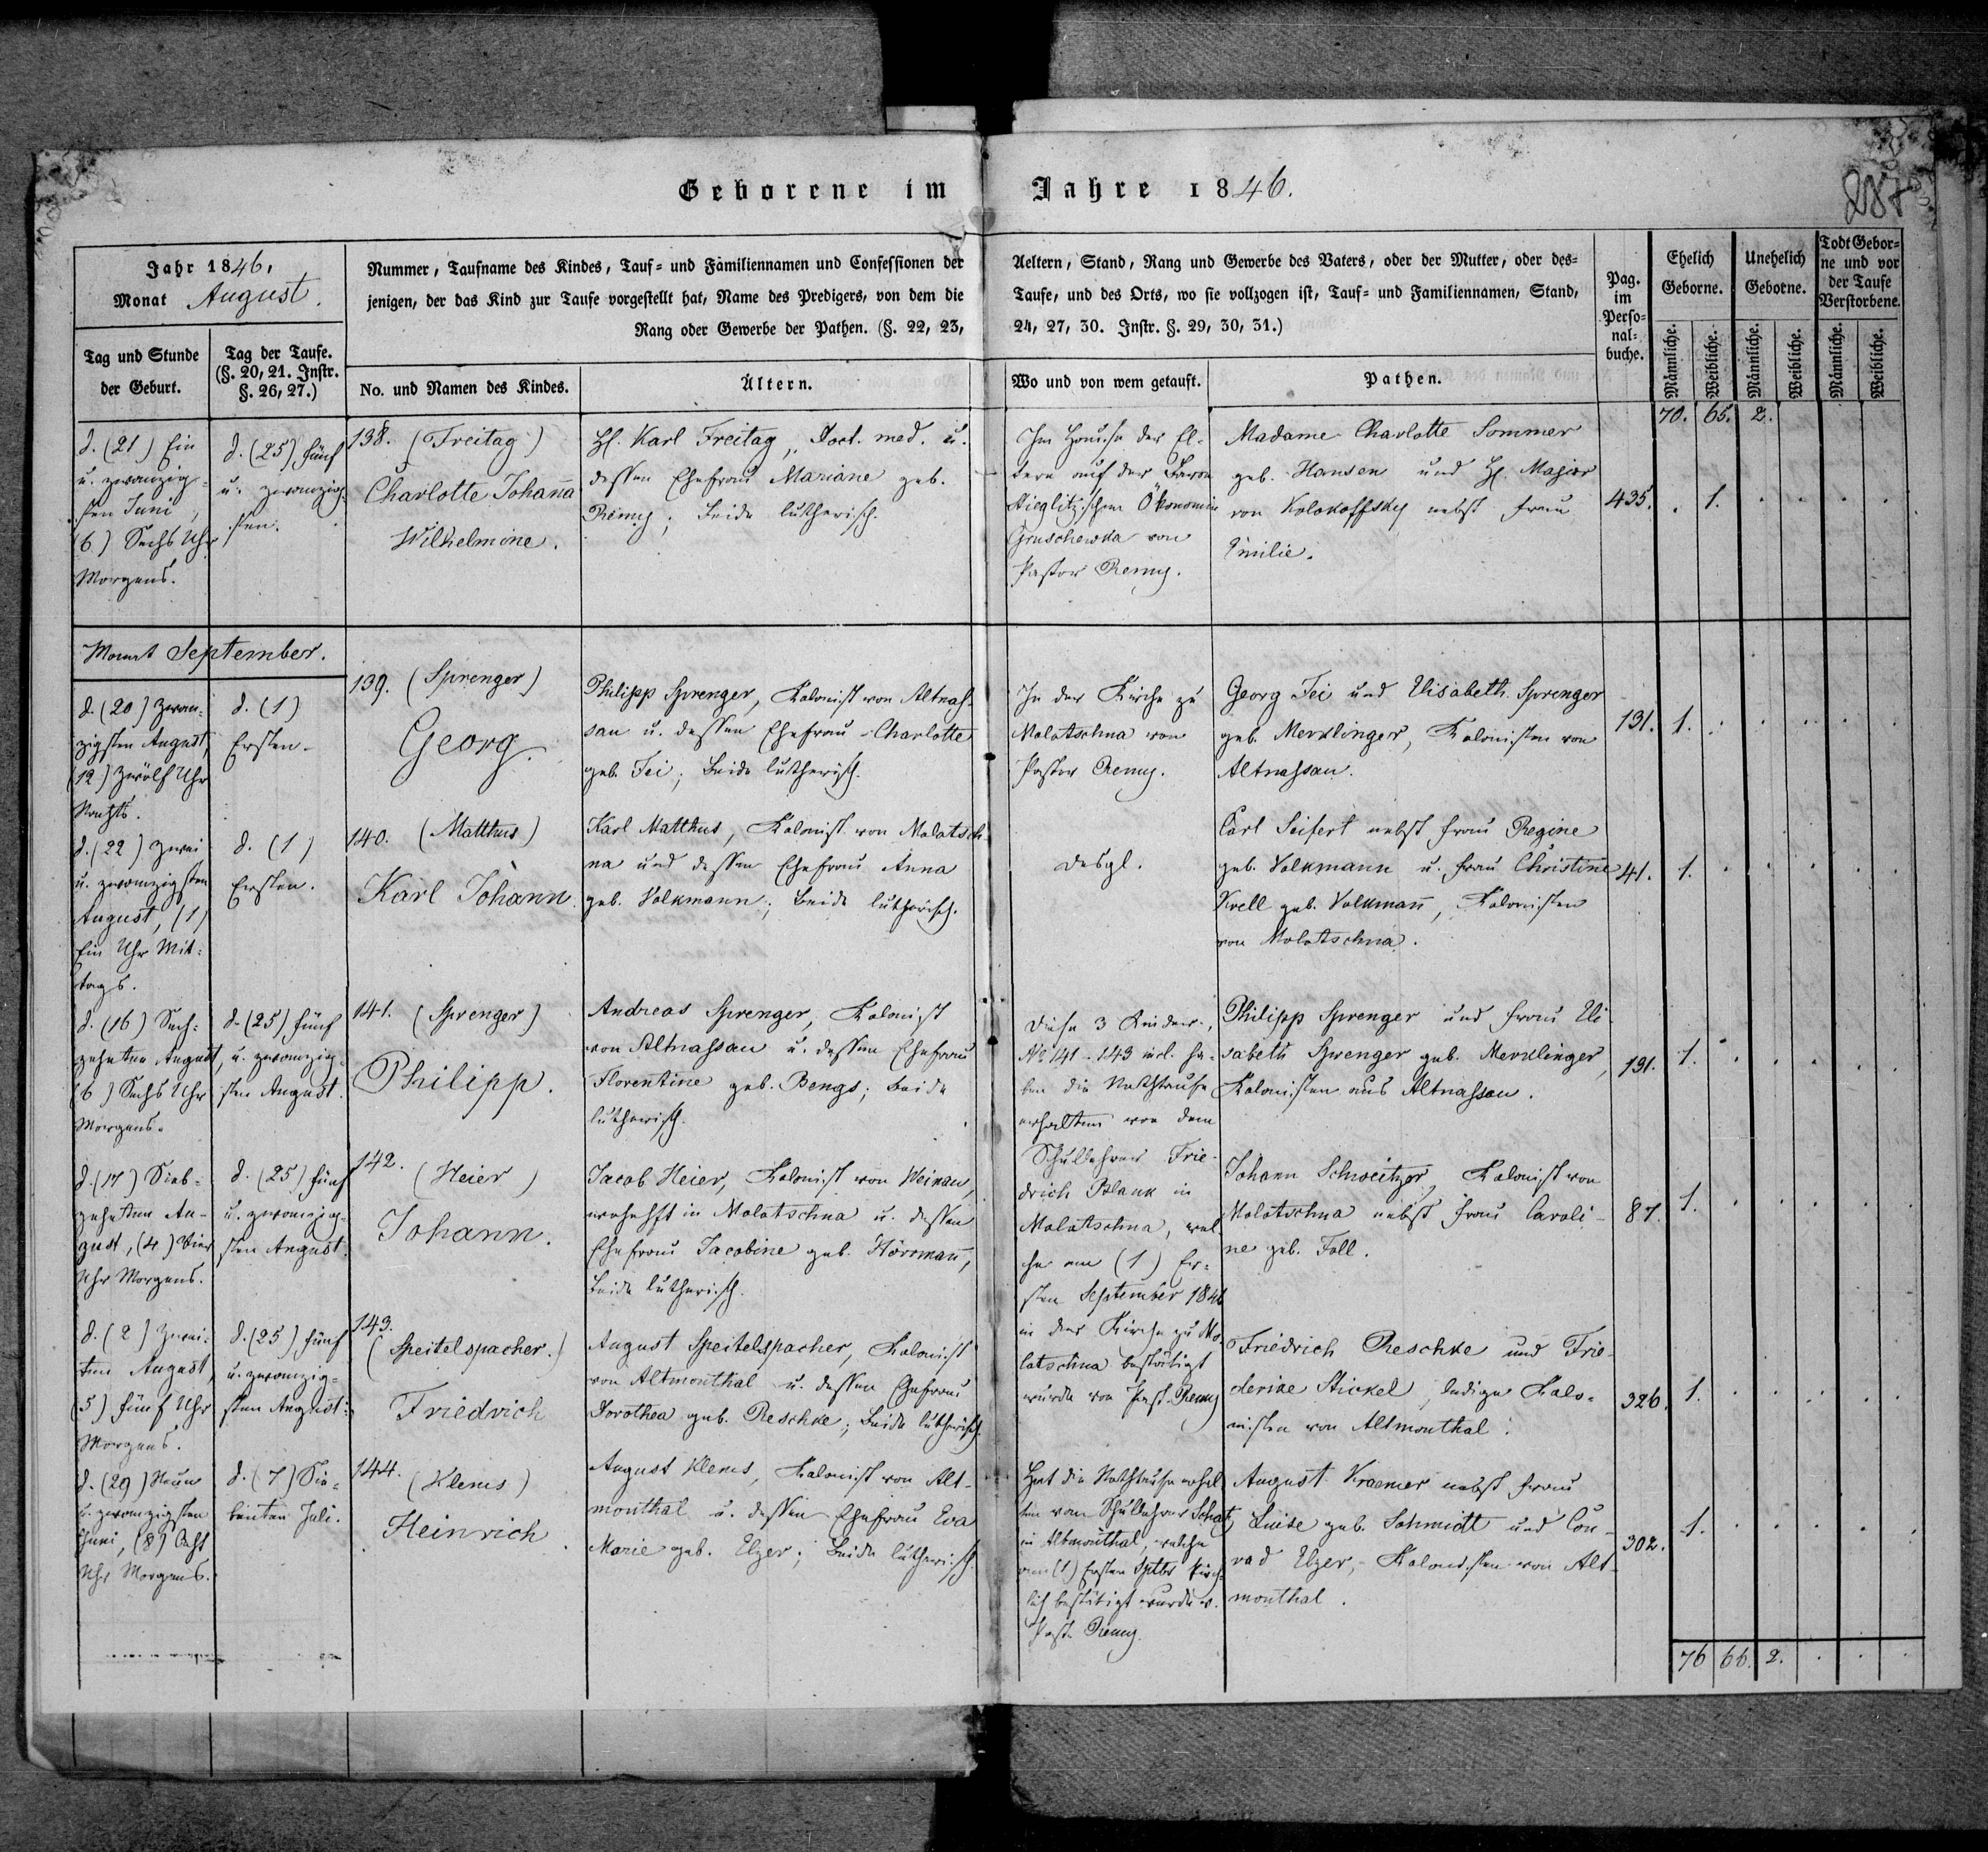 Geborene im Jahre 1846.
287
Jahr 1846,
Monat August.
Nummer, Taufname des Kindes, Tauf- und Familiennamen und Confessionen der
jenigen, der das Kind zur Taufe vorgestellt hat, Name des Predigers, von dem die
Rang oder Gewerbe der Pathen. (§. 22, 23,
Aeltern, Stand, Rang und Gewerbe des Vaters, oder der Mutter, oder des-
Taufe, und des Orts, wo sie vollzogen ist, Tauf- und Familiennamen, Stand,
24, 27, 30. Instr. §. 29, 30, 31.)
Pag.
im
Perso-
nal-
buche.
Ehelich
Geborne.
Unehelich
Geborne.
Todt Gebor-
ne und vor
der Taufe
Verstorbene.
Tag und Stunde
der Geburt.
Tag der Taufe.
(§. 20, 21. Instr.
§. 26, 27.)
No. und Namen des Kindes.
Ältern.
Wo und von wem getauft.
Pathen.
Männliche.
Weibliche.
Männliche.
Weibliche.
Männliche.
Weibliche.
70. 65. 2.
d. (21) Ein
u. zwanzig-
sten Juni,
(6) Sechs Uhr
Morgens.
d. (25) fünf
u. zwanzig-
sten.
138. (Freitag)
Charlotte Johanna
Wilhelmine.
H. Karl Freitag, Doct. med. u.
dessen Ehefrau Mariane geb.
Remy; beide lutherisch.
Im Hause der El-
tern auf der Baron
Stieglitzschen Ökonomie
Gruschewka von
Pastor Remy.
Madame Charlotte Sommer
geb. Hansen und H. Major
von Kolokoffsky nebst Frau
Emilie.
435. . 1. . . . .
Monat September.
d. (20) Zwan-
zigsten August,
(12) Zwölf Uhr
Nachts.
d. (1)
Ersten.
139. (Sprenger)
Georg.
Philipp Sprenger, Kolonist von Altnas-
sau u. dessen Ehefrau Charlotte
geb. Fei; beide lutherisch.
In der Kirche zu
Molotschna von
Pastor Remy.
Georg Fei und Elisabeth Sprenger
geb. Merklinger, Kolonisten von
Altnassau.
131. 1. . . . . .
d. (22) Zwei
u. zwanzigsten
August, (1)
Ein Uhr Mit-
tags.
d. (1)
Ersten.
140. (Matthus)
Karl Johann.
Karl Matthus, Kolonist von Molotsch-
na und dessen Ehefrau Anna
geb. Volkmann; beide lutherisch.
desgl.
Carl Seifert nebst Frau Regine
geb. Volkmann u. Frau Christine
Krell geb. Volkmann, Kolonisten
von Molotschna.
41. 1. . . . . .
d. (16) Sech-
zehnten August,
(6) Sechs Uhr
Morgens.
d. (25) fünf
u. zwanzig-
sten August.
141. (Sprenger)
Philipp.
Andreas Sprenger, Kolonist
von Altnassau u. dessen Ehefrau
Florentine geb. Bengs; beide
lutherisch.
Diese 3 Kinder,
No 141-143 incl. ha-
ben die Nothtaufe
erhalten von dem
Schullehrer Frie-
drich Blank in
Molotschna, wel-
che am (1) Er-
sten September 1846
in der Kirche zu Mo-
lotschna bestätigt
wurde von Past. Remy
Philipp Sprenger und Frau Eli-
sabeth Sprenger geb. Merklinger,
Kolonisten aus Altnassau.
131. 1. . . . . .
d. (17) Sieb-
zehnten Au-
gust, (4) Vier
Uhr Morgens.
d. (25) fünf
u. zwanzig-
sten August.
142. (Heier)
Johann.
Jacob Heier, Kolonist von Weinau,
wohnhft in Molotschna u. dessen
Ehefrau Jacobine geb. Hörrmann,
beide lutherisch.
Johann Schweitzer, Kolonist von
Molotschna nebst Frau Caroli-
ne geb. Foll.
87. 1. . . . . .
d. (2) Zwei-
ten August,
(5) fünf Uhr
Morgens.
d. (25) fünf
u. zwanzig-
sten August.
143.
(Speitelspacher.)
Friedrich
August Speitelspacher, Kolonist
von Altmonthal u. dessen Ehefrau
Dorothea geb. Reschke; beide lutherisch.
Friedrich Reschke und Frie-
derike Stickel, ledige Kolo-
nisten von Altmonthal.
326. 1. . . . . .
d. (29) Neun
u. zwanzigsten
Juni, (8) Acht
Uhr Morgens.
d. (7) Sie-
benten Juli.
144.
(Klems)
Heinrich.
August Klems, Kolonist von Alt-
monthal u. dessen Ehefrau Eva
Marie geb. Elzer; beide lutherisch.
Hat die Nothtaufe erhal-
ten vom Schullehrer Schatz
in Altmonthal, welche
am (1) Ersten Sptbr kirch-
lich bestätigt wurde v.
Past. Remy.
August Kraemer nebst Frau
Luise geb. Schmidt und Con-
rad Elzer, Kolonisten von Alt-
monthal.
302. 1. . . . . .
76 66. 2. . . .